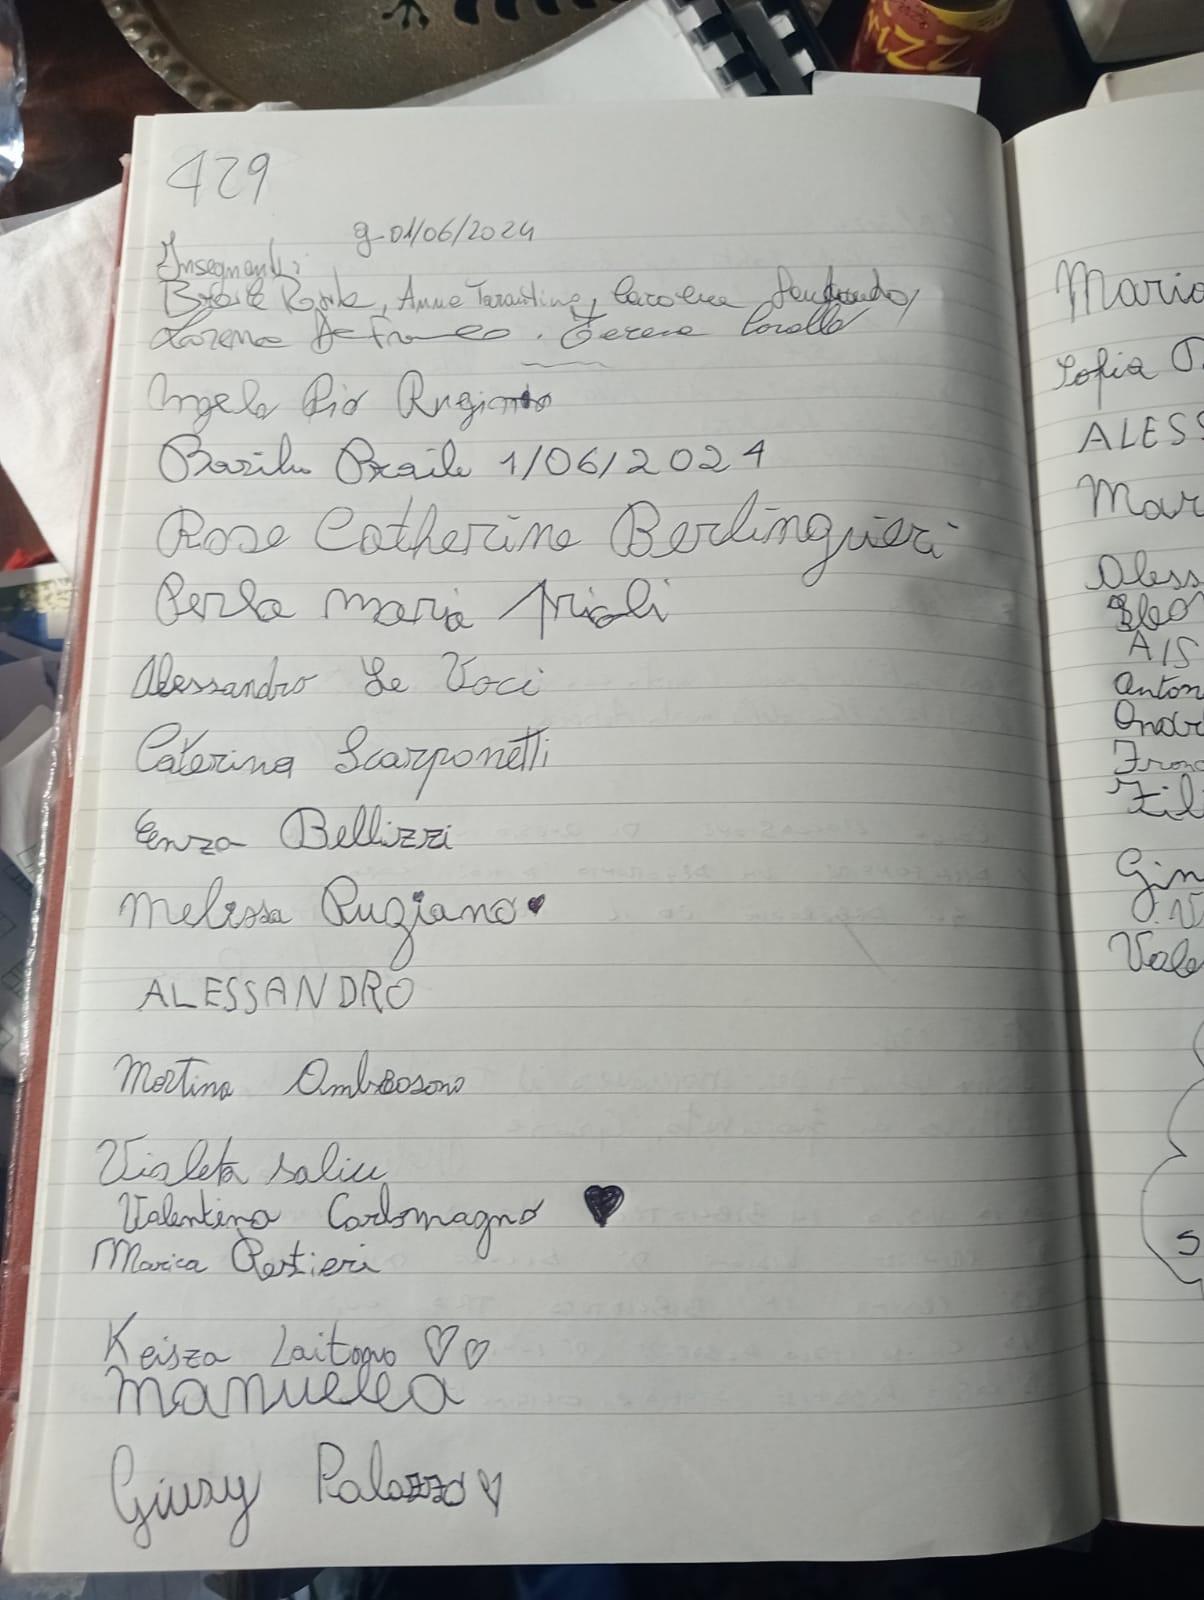 IZZ
429
g-01/06/2024
Insegnanti:
Braile Rosita, Anna Tarantino, Carolina
Lorena De Franco. Teresa Corallo
Angelo Pio Rugiano
Basilio Braile 1/06/2024
Rose Catherine Berlingieri
Perla Maria Aprioli
Alessandro Le Voci
Caterina Scarponetti
Enza Bellizzi
Melissa Rugiano
ALESSANDRO
Martina Ambrosono
Violeta Saliu
Valentina Carlomagno
Marica Restieri
Keisza Laitano
manuella
Giusy Palazzo
Maria
Sofia
ALESS
Mar
Aless
Eleo
AIS
Anton
Andr
Franc
Fili
Gin
G.V
Vale
S